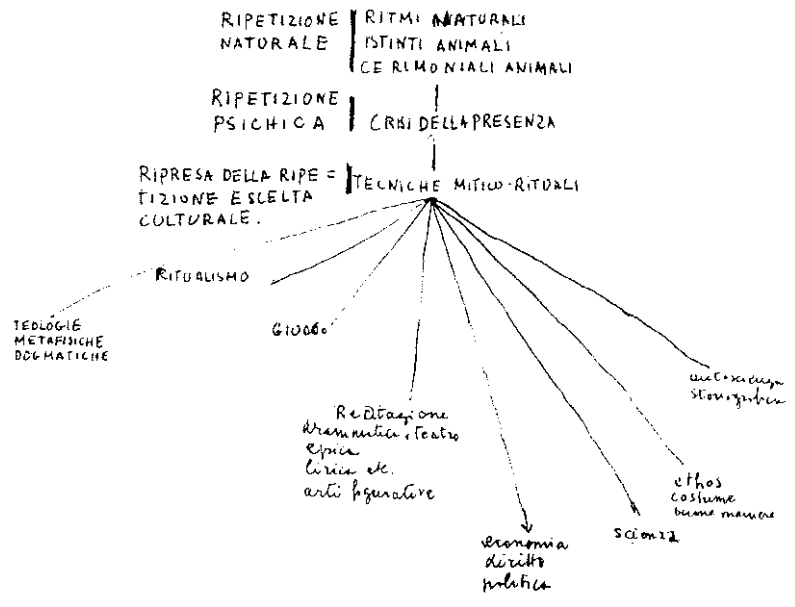 RIPETIZIONE
NATURALE
RITMI NATURALI
ISTINTI ANIMALI
CERIMONIALI ANIMALI
RIPETIZIONE
PSICHICA
CRISI DELLA PRESENZA
RIPRESA DELLA RIPE=
TIZIONE E SCELTA
CULTURALE.
TECNICHE MITICO-RITUALI
TEOLOGIE
METAFISICHE
DOGMATICHE
RITUALISMO
GIUOCO
Recitazione
drammatica, teatro
epica
lirica etc.
arti figurative
economia
diritto
politica
scienza
ethos
costume
buone maniere
autoscienza
storiografica